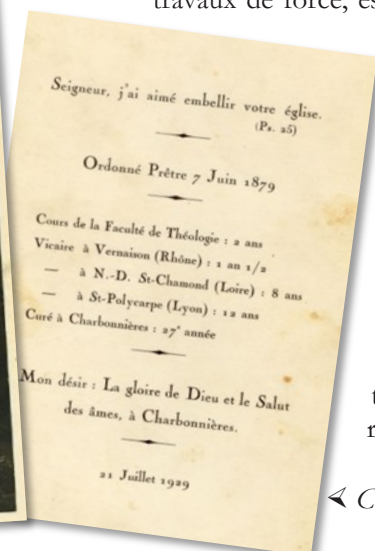 travaux de force, es
Seigneur, j'ai aimé embellir votre église.
(Ps. 25)
Ordonné Prêtre 7 Juin 1879
Cours de la Faculté de Théologie : 2 ans
Vicaire à Vernaison (Rhône) : 1 an 1/2
— à N.-D. St-Chamond (Loire) : 8 ans
— à St-Polycarpe (Lyon) : 12 ans
Curé à Charbonnières : 27e année
Mon désir : La gloire de Dieu et le Salut
des âmes, à Charbonnières.
21 Juillet 1929
t
r
C